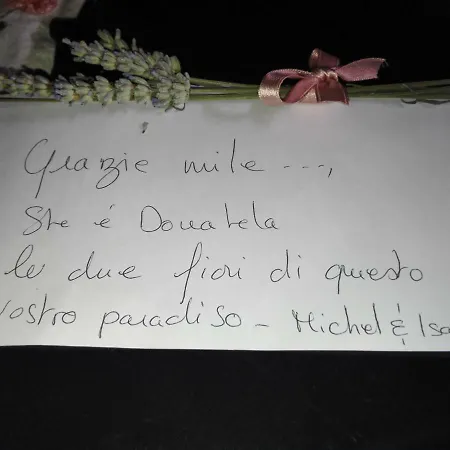 Grazie mile ....,
Ste é Donatela
le due fiori di questo
vostro paradiso - Michel & Isa